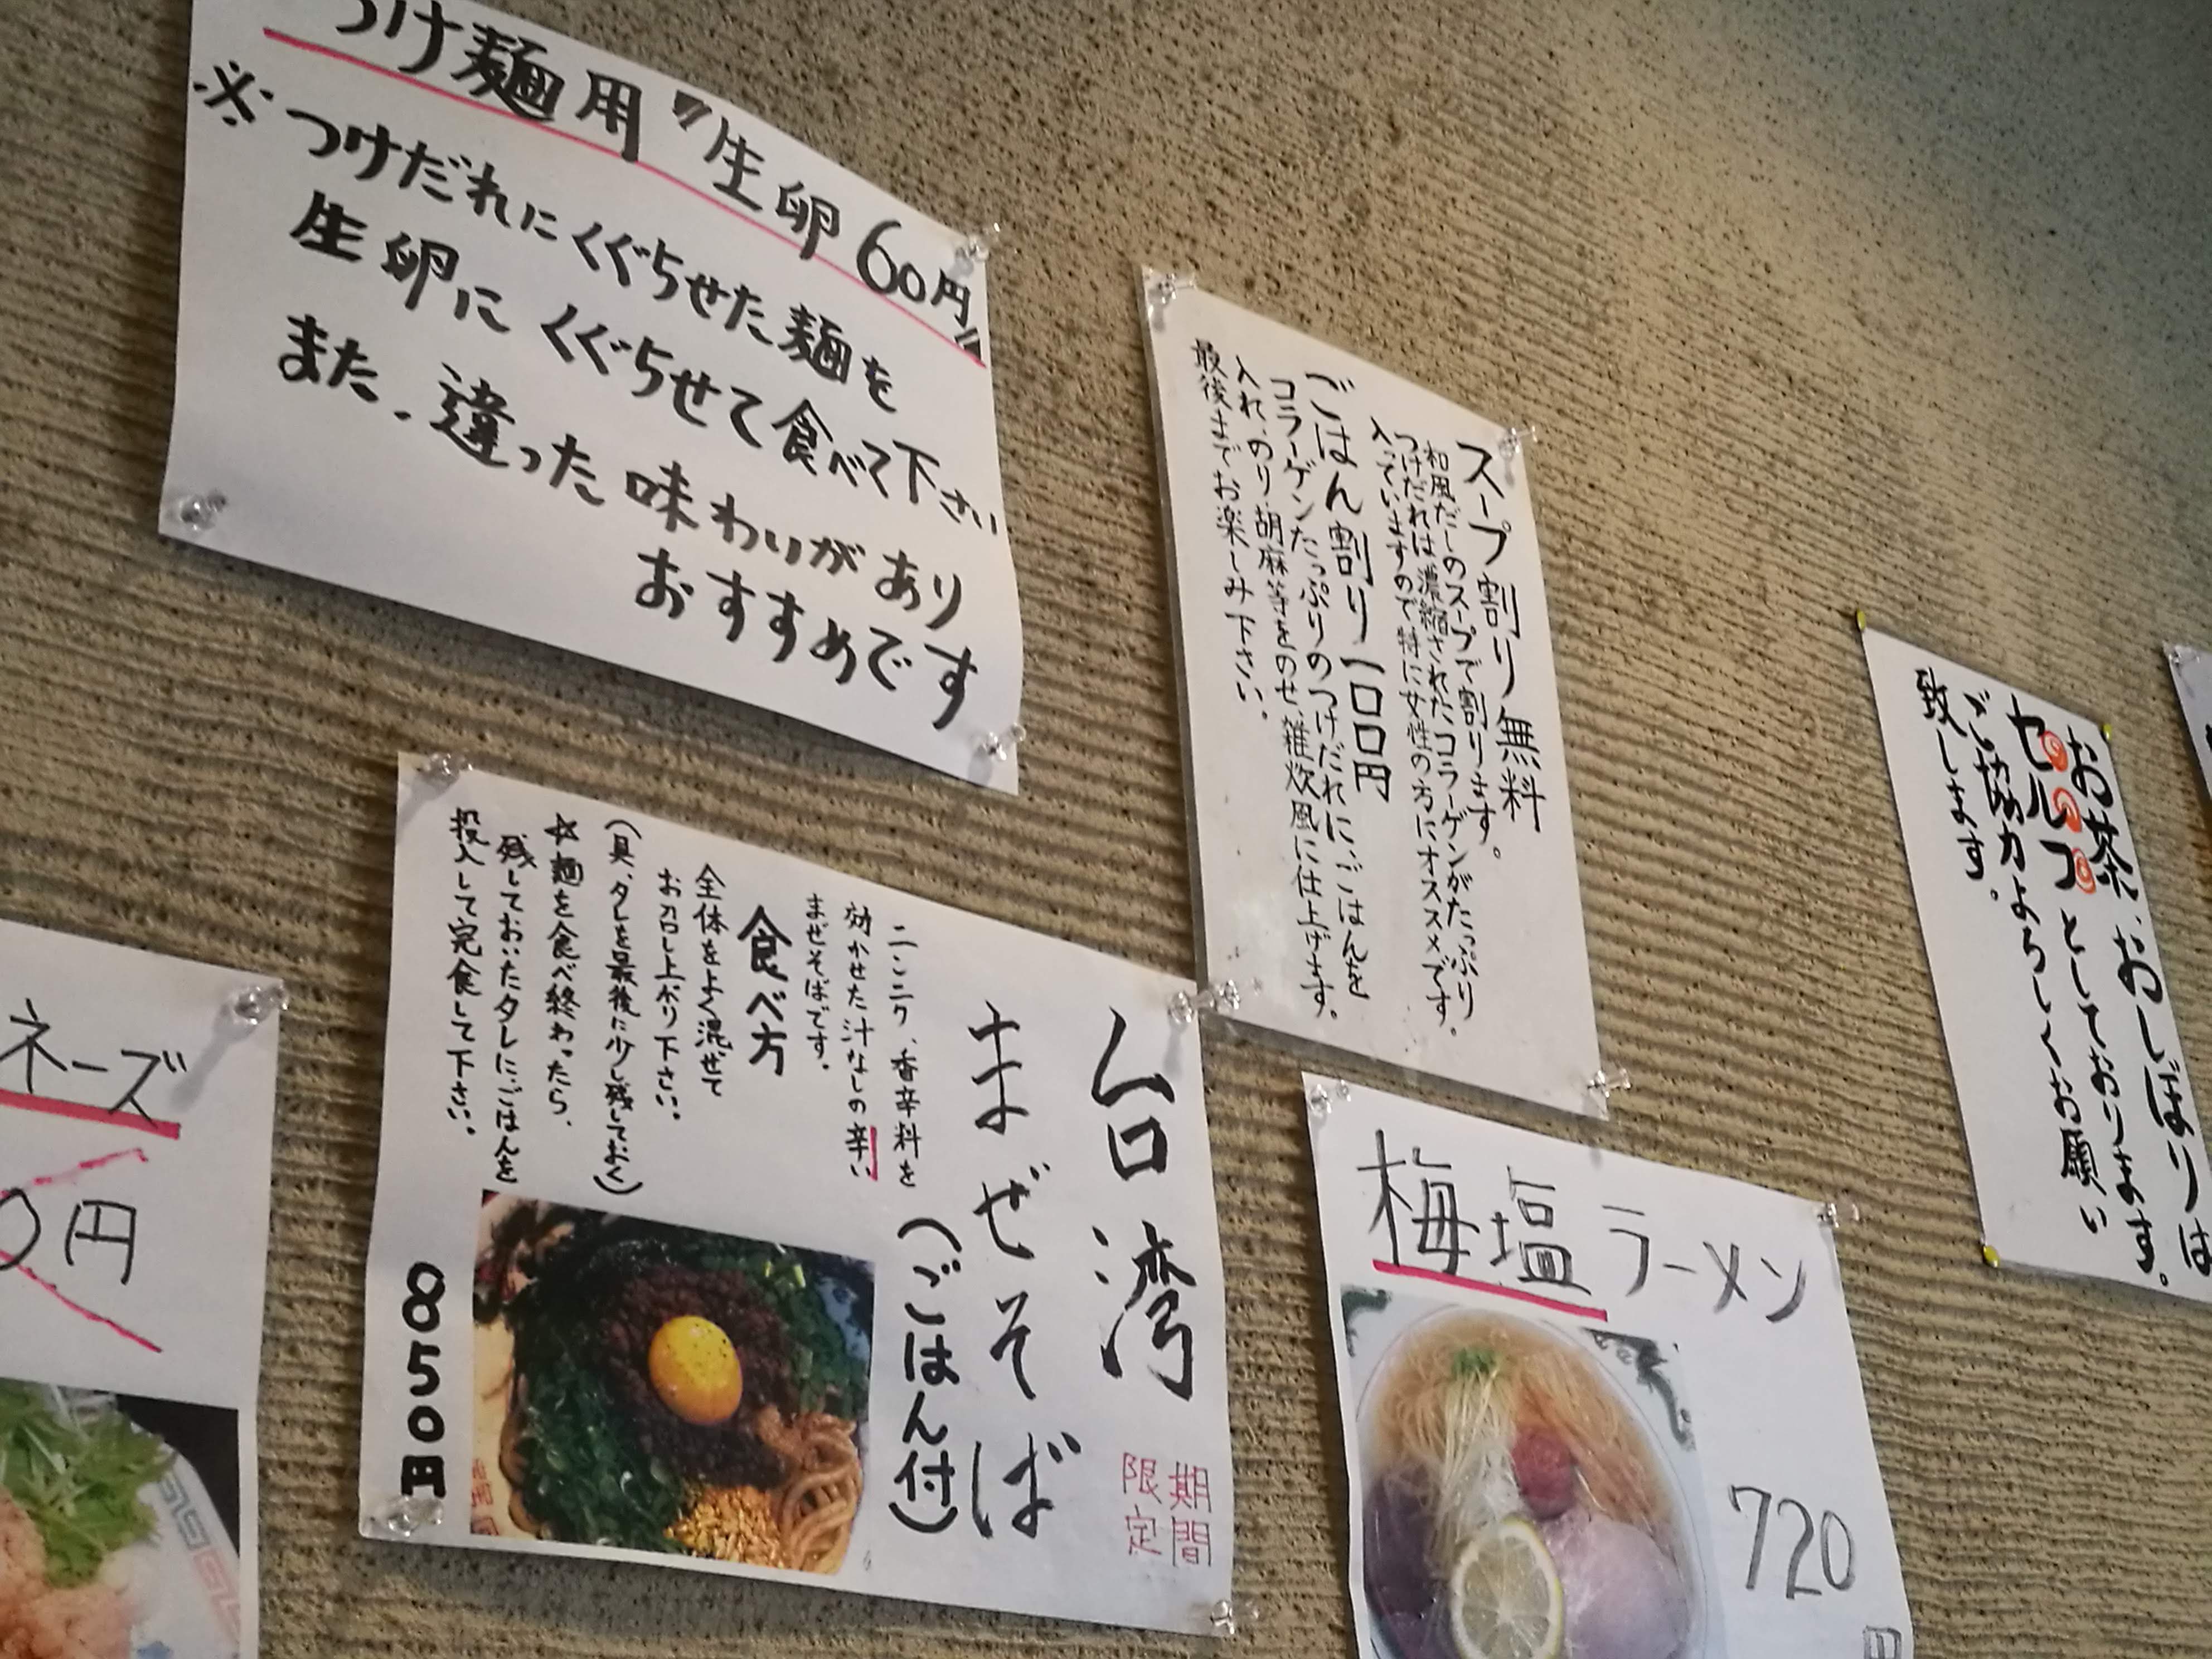 つけ麺用〃生卵60円〃
※つけだれにくぐらせた麺を
生卵にくぐらせて食べて下さい
また、違った味わいがあり
おすすめです
スープ割り無料
和風だしのスープで割ります。
つけだれは濃縮されたコラーゲンがたっぷり
入っていますので特に女性の方にオススメです。
ごはん割り一〇〇円
コラーゲンたっぷりのつけだれに、ごはんを
入れ、のり、胡麻等をのせ、雑炊風に仕上げます。
最後までお楽しみ下さい。
お茶、おしぼりは
セルフとしております。
ご協力よろしくお願い
致します。
台湾
まぜそば
(ごはん付)
期間
限定
ニンニク、香辛料を
効かせた汁なしの辛い
まぜそばです。
食べ方
全体をよく混ぜて
お召し上がり下さい。
(具、タレを最後に少し残しておく)
☆麺を食べ終わったら、
残しておいたタレに、ごはんを
投入して完食して下さい。
850円
梅塩ラーメン
720
円
ネーズ
0円